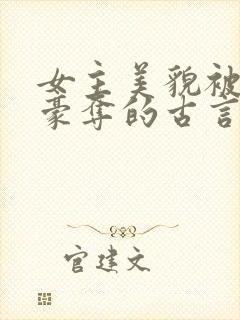 女主美貌被
豪夺的古言
官建文